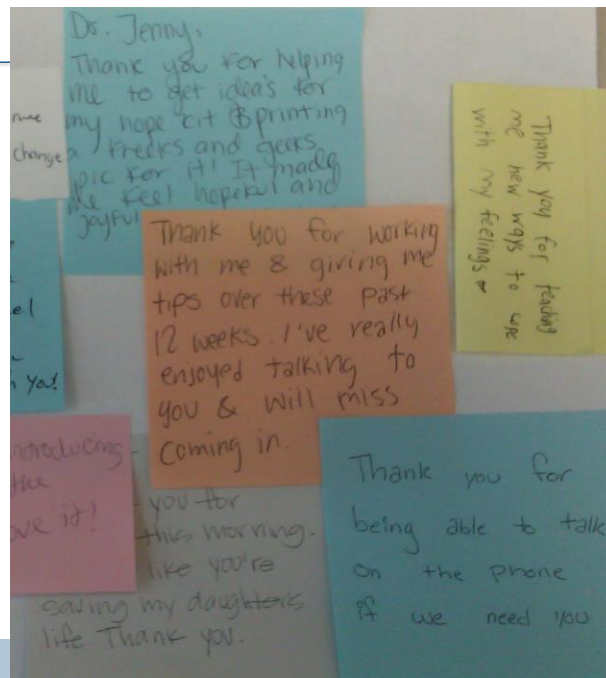 Dr. Jenny,
Thank you for helping
me to get idea's for
my hope kit & printing
a freeks and geeks
pic for it! It made
me feel hopeful and
joyful
change
el
you!
Thank you for teaching
me new ways to cope
with my feelings ♥
Thank you for working
with me & giving me
tips over these past
12 weeks. I've really
enjoyed talking to
you & will miss
coming in.
introducing
the
ove it!
you for
this morning.
like you're
saving my daughters
life Thank you.
Thank you for
being able to talk
on the phone
if we need you